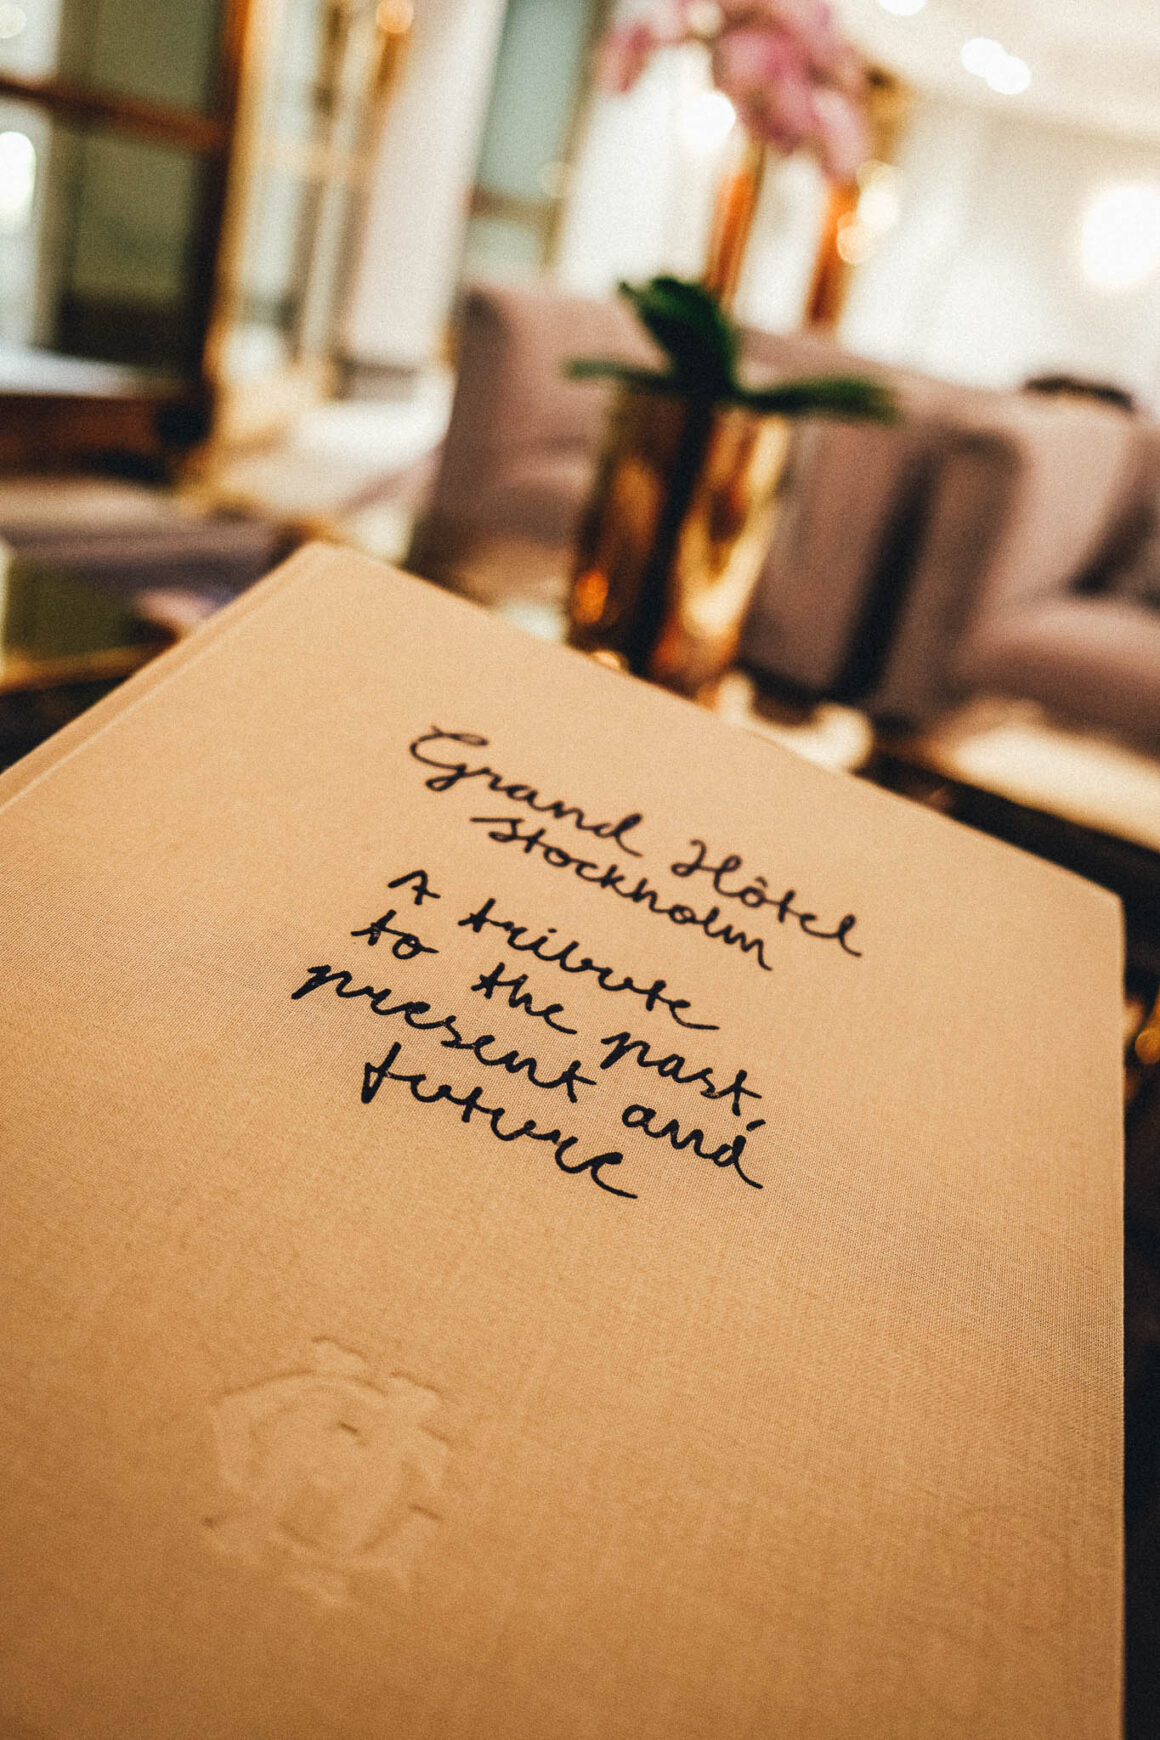 Grand Hôtel
Stockholm
A tribute
to the past,
present and
future